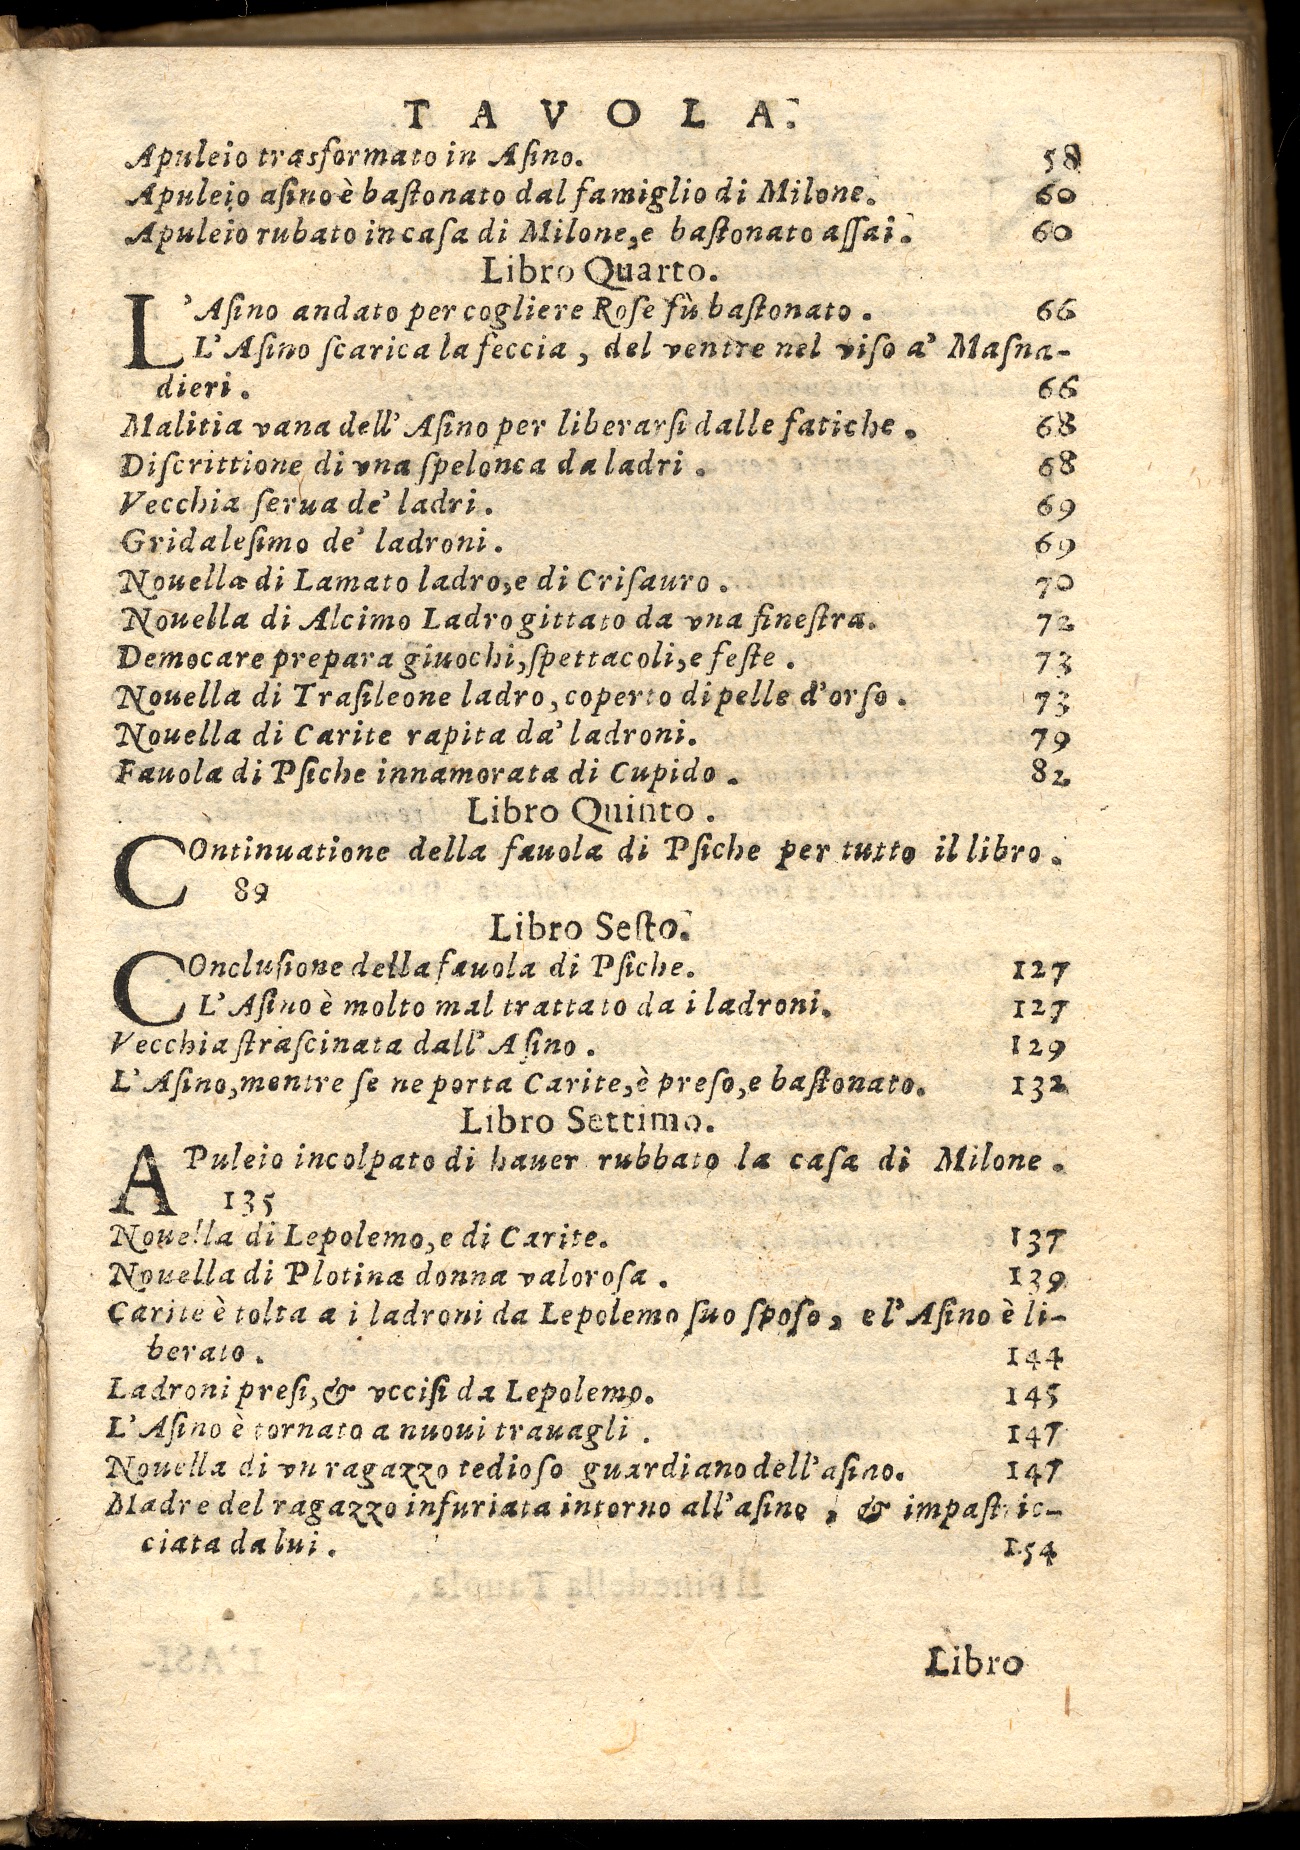 TAVOLA.
Apuleio trasformato in Asino. 58
Apuleio asino è bastonato dal famiglio di Milone. 60
Apuleio rubato in casa di Milone, e bastonato assai. 60
Libro Quarto.
L'Asino andato per cogliere Rose fù bastonato. 66
L'Asino scarica la feccia, del ventre nel viso a' Masna-
dieri. 66
Malitia vana dell'Asino per liberarsi dalle fatiche. 68
Discrittione di vna spelonca da ladri. 68
Vecchia serua de' ladri. 69
Gridalesimo de' ladroni. 69
Nouella di Lamato ladro, e di Crisauro. 70
Nouella di Alcimo Ladro gittato da vna finestra. 72
Democare prepara giuochi, spettacoli, e feste. 73
Nouella di Trasileone ladro, coperto di pelle d'orso. 73
Nouella di Carite rapita da' ladroni. 79
Fauola di Psiche innamorata di Cupido. 82
Libro Quinto.
COntinuatione della fauola di Psiche per tutto il libro.
89
Libro Sesto.
COnclusione della fauola di Psiche. 127
L'Asino è molto mal trattato da i ladroni. 127
Vecchia strascinata dall'Asino. 129
L'Asino, mentre se ne porta Carite, è preso, e bastonato. 132
Libro Settimo.
APuleio incolpato di hauer rubbato la casa di Milone.
135
Nouella di Lepolemo, e di Carite. 137
Nouella di Plotina donna valorosa. 139
Carite è tolta a i ladroni da Lepolemo suo sposo, e l'Asino è li-
berato. 144
Ladroni presi, & vccisi da Lepolemo. 145
L'Asino è tornato a nuoui trauagli. 147
Nouella di vn ragazzo tedioso guardiano dell'asino. 147
Madre del ragazzo infuriata intorno all'asino, & impastric-
ciata da lui. 154
Libro